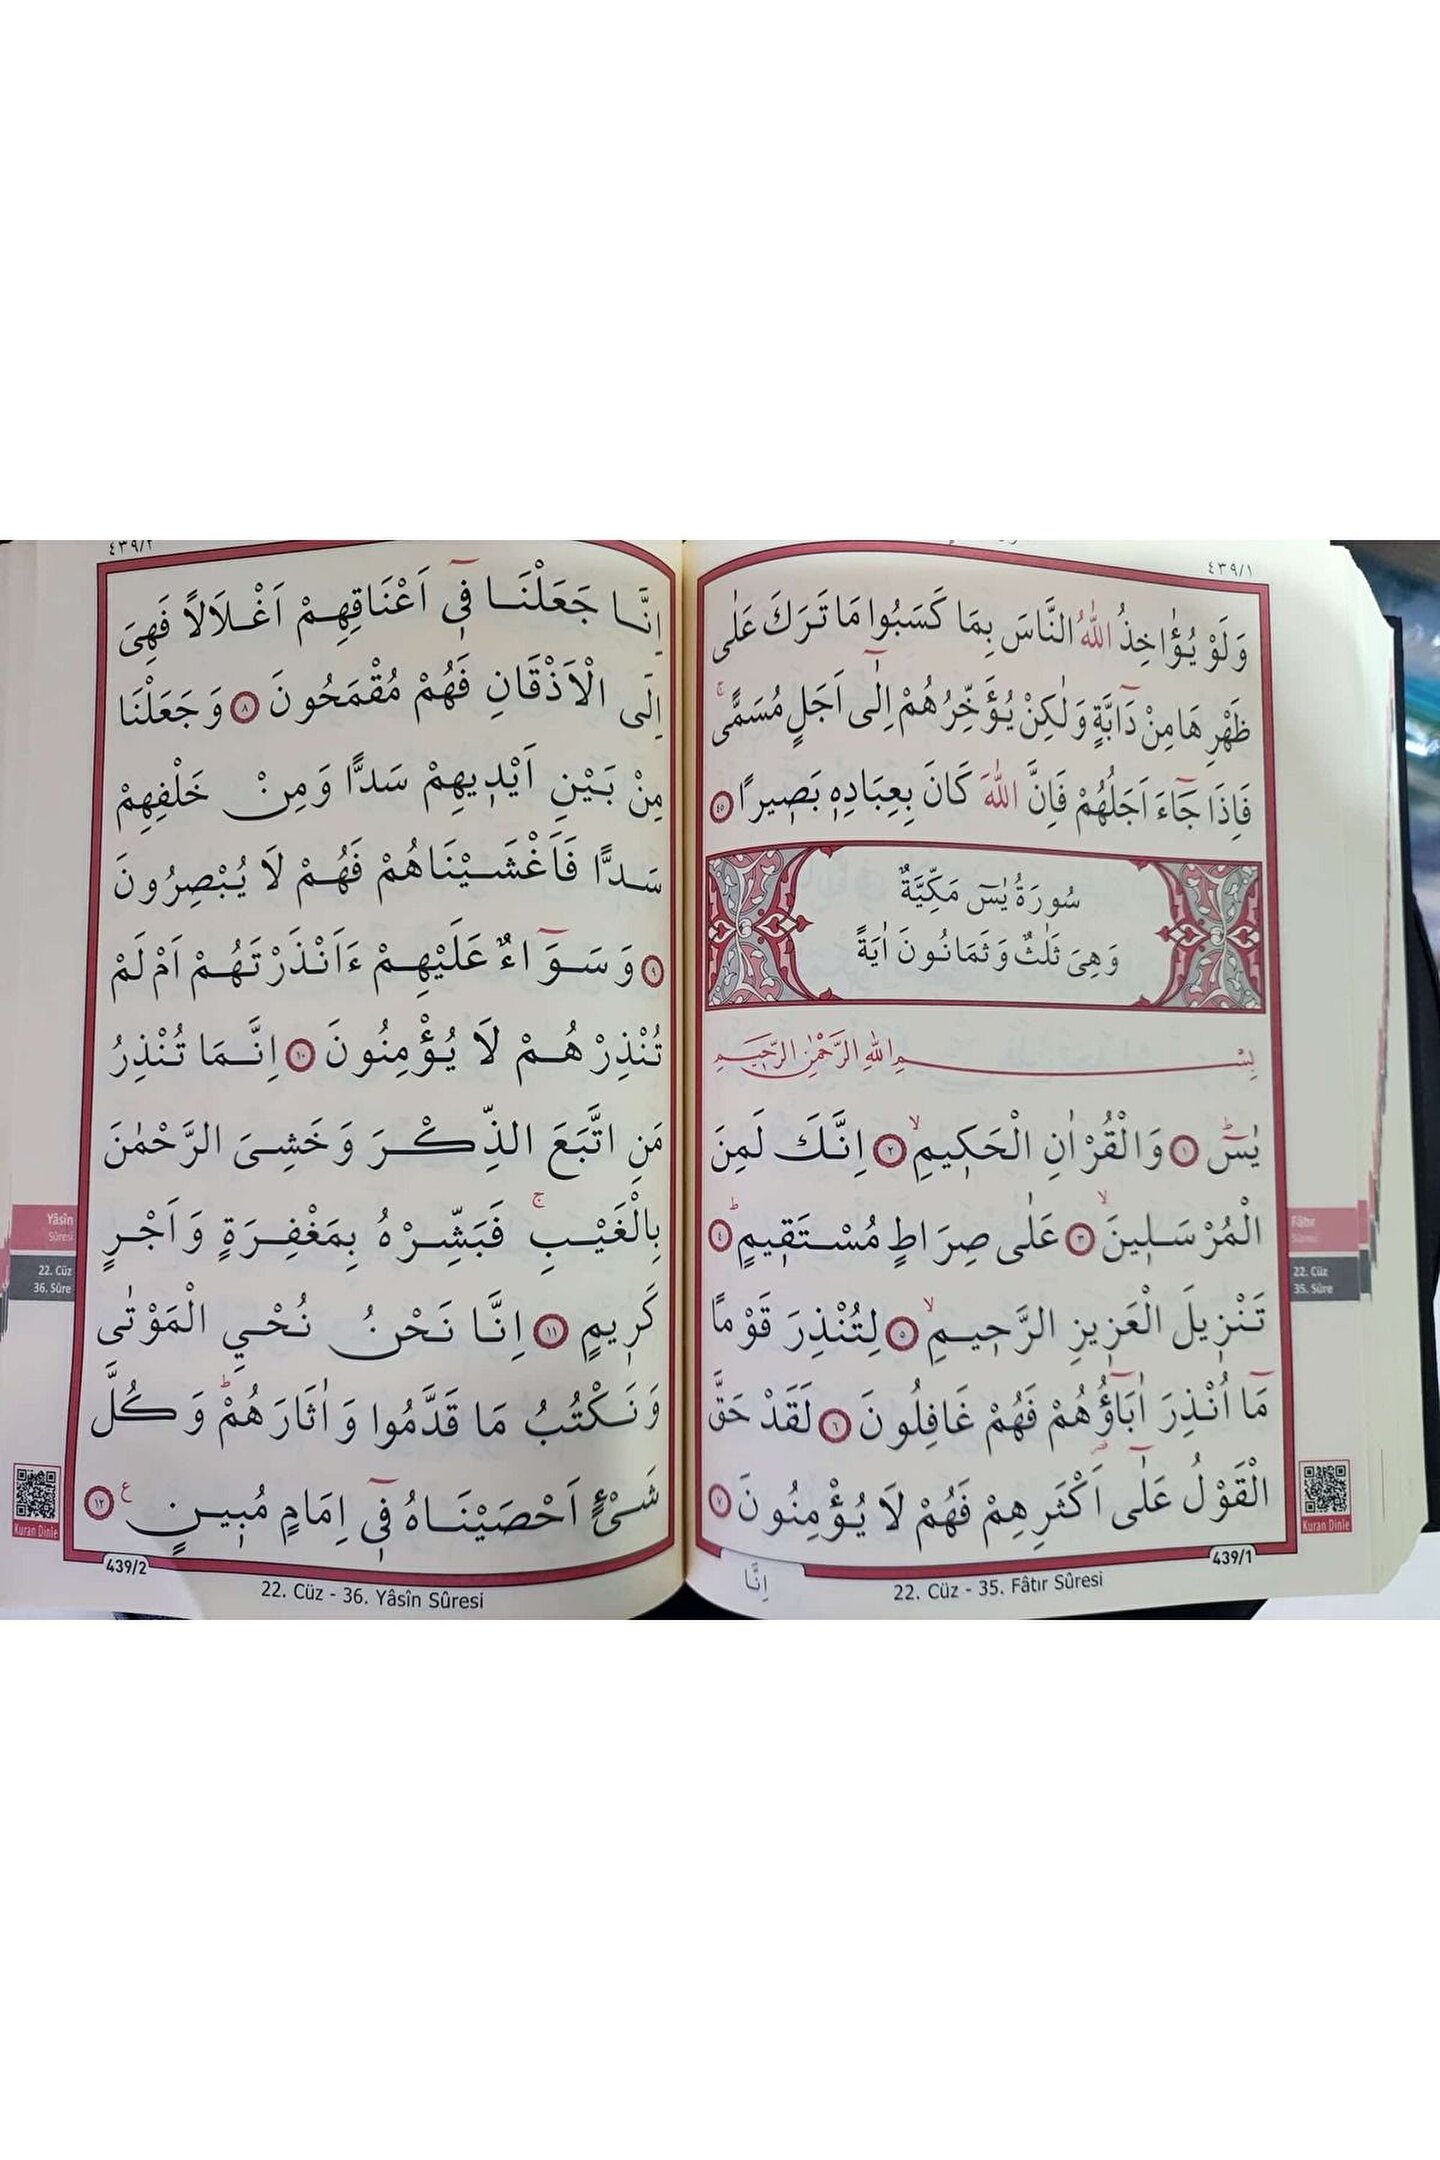 ٤٣٩/١
وَلَوْ يُؤَٰاخِذُ اللّٰهُ النَّاسَ بِمَا كَسَبُوا مَا تَرَكَ عَلٰى
ظَهْرِهَا مِنْ دَٓابَّةٍ وَلٰكِنْ يُؤَخِّرُهُمْ اِلٰٓى اَجَلٍ مُسَمًّىۚ
فَاِذَا جَٓاءَ اَجَلُهُمْ فَاِنَّ اللّٰهَ كَانَ بِعِبَادِه۪ بَص۪يرًا ٤٥
سُورَةُ يٰسٓ مَكِّيَّةٌ
وَهِيَ ثَلٰثٌ وَثَمَانُونَ اٰيَةً
بِسْمِ اللّٰهِ الرَّحْمٰنِ الرَّح۪يمِ
يٰسٓۜ ١ وَالْقُرْاٰنِ الْحَك۪يمِۙ ٢ اِنَّكَ لَمِنَ
الْمُرْسَل۪ينَۙ ٣ عَلٰى صِرَاطٍ مُسْتَق۪يمٍۜ ٤
تَنْز۪يلَ الْعَز۪يزِ الرَّح۪يمِۙ ٥ لِتُنْذِرَ قَوْمًا
مَٓا اُنْذِرَ اٰبَٓاؤُ۬هُمْ فَهُمْ غَافِلُونَ ٦ لَقَدْ حَقَّ
الْقَوْلُ عَلٰٓى اَكْثَرِهِمْ فَهُمْ لَا يُؤْمِنُونَ ٧
اِنَّا
439/1
22. Cüz - 35. Fâtır Sûresi
Fâtır
Sûresi
22. Cüz
35. Sûre
Kuran Dinle
٤٣٩/٢
اِنَّا جَعَلْنَا ف۪ٓي اَعْنَاقِهِمْ اَغْلَالًا فَهِيَ
اِلَى الْاَذْقَانِ فَهُمْ مُقْمَحُونَ ٨ وَجَعَلْنَا
مِنْ بَيْنِ اَيْد۪يهِمْ سَدًّا وَمِنْ خَلْفِهِمْ
سَدًّا فَاَغْشَيْنَاهُمْ فَهُمْ لَا يُبْصِرُونَ
٩ وَسَوَٓاءٌ عَلَيْهِمْ ءَاَنْذَرْتَهُمْ اَمْ لَمْ
تُنْذِرْهُمْ لَا يُؤْمِنُونَ ١٠ اِنَّمَا تُنْذِرُ
مَنِ اتَّبَعَ الذِّكْرَ وَخَشِيَ الرَّحْمٰنَ
بِالْغَيْبِۚ فَبَشِّرْهُ بِمَغْفِرَةٍ وَاَجْرٍ
كَر۪يمٍ ١١ اِنَّا نَحْنُ نُحْيِ الْمَوْتٰى
وَنَكْتُبُ مَا قَدَّمُوا وَاٰثَارَهُمْۜ وَكُلَّ
شَيْءٍ اَحْصَيْنَاهُ ف۪ٓي اِمَامٍ مُب۪ينٍ ع ١٢
439/2
22. Cüz - 36. Yâsîn Sûresi
Yâsîn
Sûresi
22. Cüz
36. Sûre
Kuran Dinle